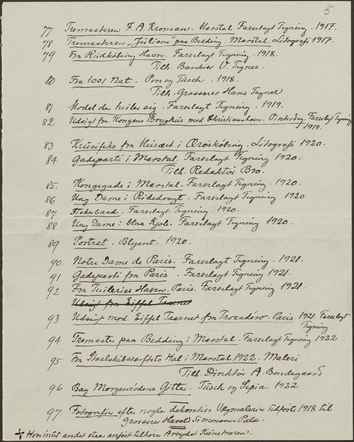 5
77 Tremasteren F. A. Kroman. Marstal. Farvelagt Tegning. 1917.
78 Tremasteren "Fiction" paa Bedding Marstal. Litografi 1917.
79 Fra Rudkøbing Havn. Farvelagt Tegning. 1918.
Tilh Bankier V. Tegner.
80 Fra 1001 Nat. Pen og Tusch. 1918.
Tilh Grosserer Hans Tegner
81 Model der hviler sig. Farvelagt Tegning. 1919.
82 Udsigt fra Kongens Brygge mod Christianshavn. Farvelagt Tegning
1919.
83 Krucifiks fra Kirken i Ærøskøbing. Litografi 1920.
84 Gadeparti i Marstal. Farvelagt Tegning. 1920.
Tilh. Redaktør Bro.
85. Kongegade i Marstal. Farvelagt Tegning. 1920.
86 Ung Dame i Ridedragt. Farvelagt Tegning 1920
87 Farvelagt Tegning. 1920.
88 Ung Dame i blaa Kjole. Farvelagt Tegning 1920.
89 Portræt. Blyant. 1920.
90 Notre Dame de Paris. Farvelagt Tegning. 1921.
91 Gadeparti fra Paris. Farvelagt Tegning. 1921.
92 Fra Tuileries Haven. Paris. Farvelagt Tegning 1921.
Udsigt fra Eiffel Taarnet
93 Udsigt mod Eiffel Taarnet fra Trocadero. Paris 1921 Farvelagt
Tegning
94 Tremaster paa Bedding i Marstal. Farvelagt Tegning 1922
95 Fra i Marstal 1922. Maleri
Tilh Direktør A. Bundgaard
96 Bag Morgenrødens Gitter. Tusch og Sepia 1922
97 Fotografier efter nogle dekorative Oljemalerier udførte 1918 til
Grosserer Simonsens Palæ